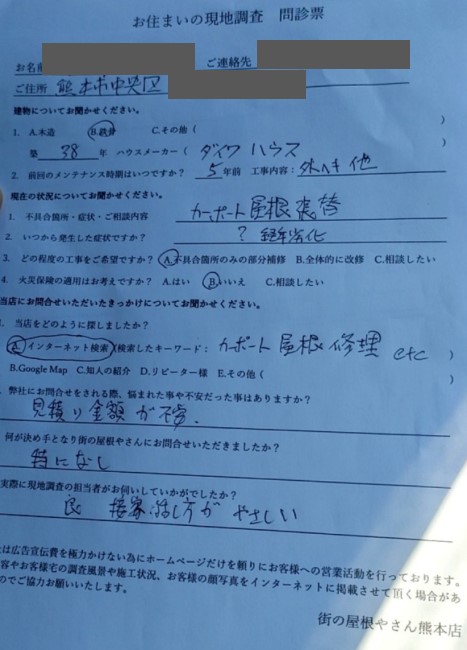 お住まいの現地調査 問診票
お名前
ご連絡先
ご住所 熊本市中央区
建物についてお聞かせください。
1. A.木造 B.鉄骨 C.その他 ( )
築 38 年 ハウスメーカー ( ダイワハウス )
2. 前回のメンテナンス時期はいつですか? 5 年前 工事内容: 外ヘキ他
現在の状況についてお聞かせください。
1. 不具合箇所・症状・ご相談内容 カーポート屋根張替
2. いつから発生した症状ですか? ? 経年劣化
3. どの程度の工事をご希望ですか? A.不具合箇所のみの部分補修 B.全体的に改修 C.相談したい
4. 火災保険の適用はお考えですか? A.はい B.いいえ C.相談したい
当店にお問合せいただいたきっかけについてお聞かせください。
1. 当店をどのように探しましたか?
A.インターネット検索 (検索したキーワード: カーポート屋根修理 etc )
B.Google Map C.知人の紹介 D.リピーター様 E.その他 ( )
弊社にお問合せをされる際、悩まれた事や不安だった事はありますか?
見積り金額が不安.
何が決め手となり街の屋根やさんにお問合せいただきましたか?
特になし
実際に現地調査の担当者がお伺いしていかがでしたか?
良 接客 話し方が やさしい
は広告宣伝費を極力かけない為にホームページだけを頼りにお客様への営業活動を行っております。
容やお客様宅の調査風景や施工状況、お客様の顔写真をインターネットに掲載させて頂く場合があ
のでご協力お願いいたします。
街の屋根やさん熊本店